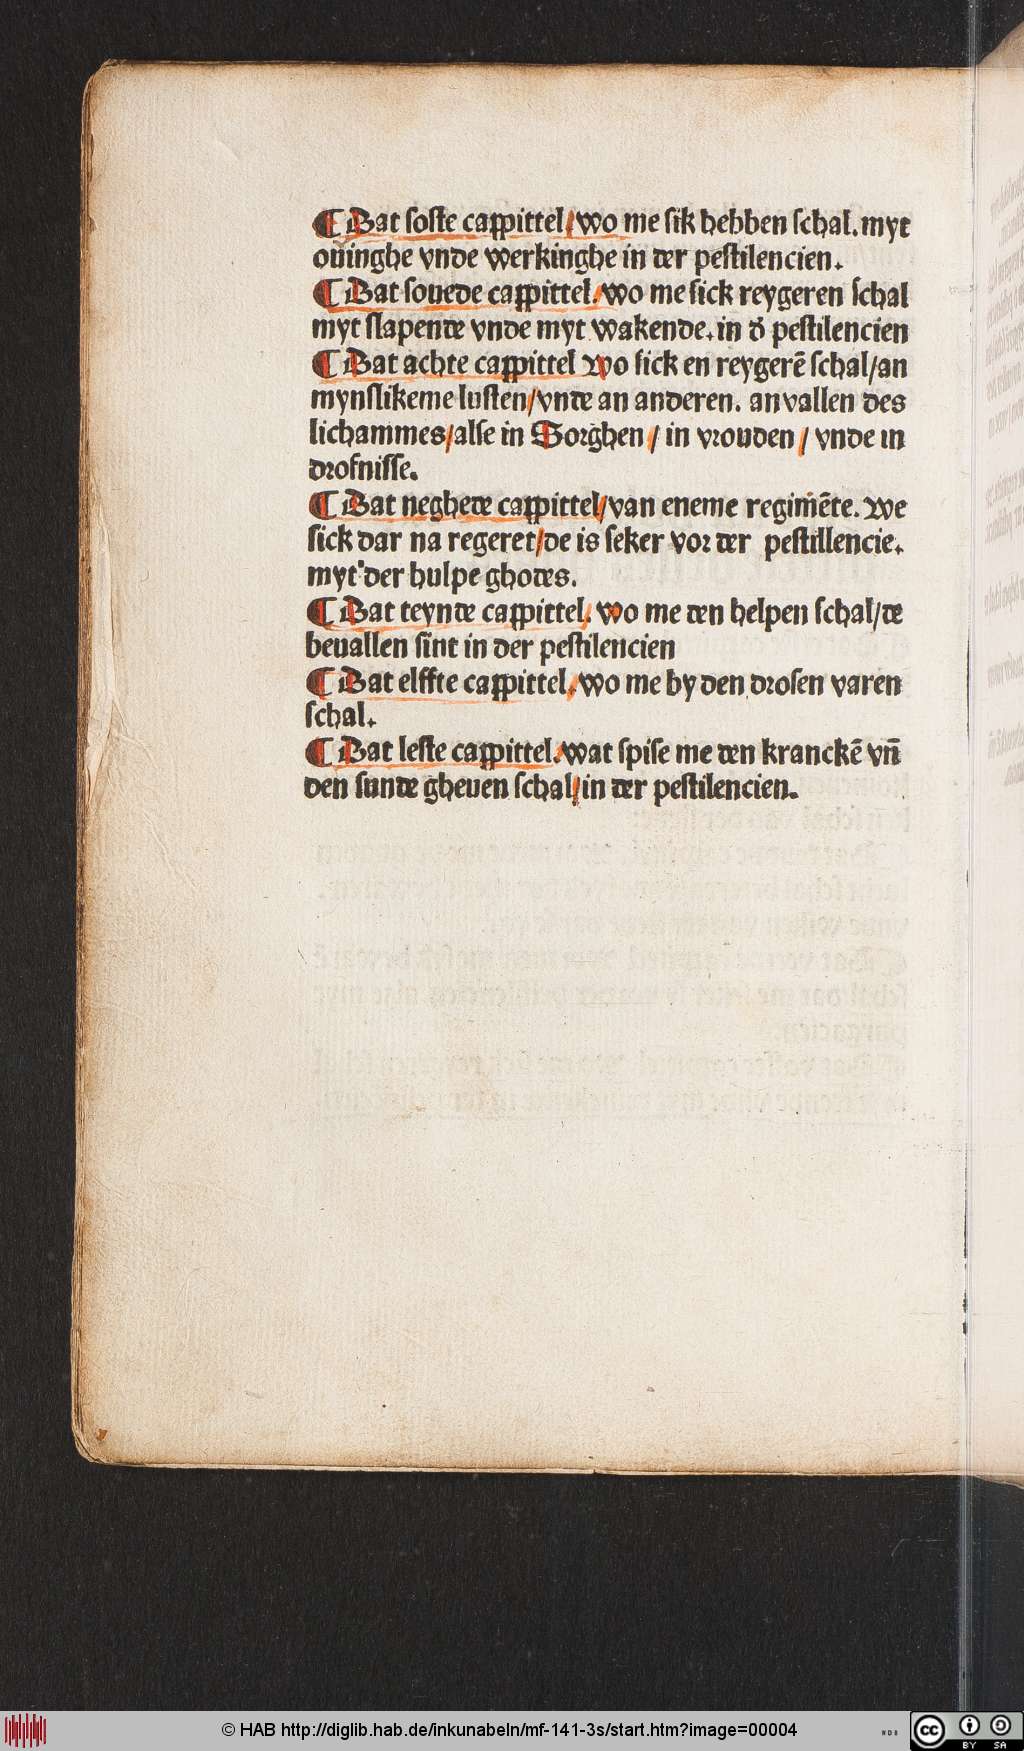 ¶ Dat soste cappittel/wo me sik hebben schal. myt
ouinghe vnde werkinghe in der pestilencien.
¶ Dat souede cappittel/wo me sick reygeren schal
myt slapende vnde myt wakende. in d̓ pestilencien
¶ Dat achte cappittel Wo sick en reygerē schal/an
mynslikeme lusten/vnde an anderen. anvallen des
lichammes/alse in Sorghen/ in vrouden/ vnde in
drofnisse.
¶ Dat neghede cappittel/van eneme regim̄ēte. We
sick dar na regeret/de is seker vor der pestillencie.
myt der hulpe ghodes.
¶ Dat teynde cappittel/. wo me den helpen schal/de
beuallen sint in der pestilencien
¶ Dat elffte cappittel/wo me by den drosen varen
schal.
¶ Dat leste cappittel/wat spise me den kranckē vn̄
den sunde gheuen schal/in der pestilencien.
© HAB http://diglib.hab.de/inkunabeln/mf-141-3s/start.htm?image=00004
WDB
cc BY SA